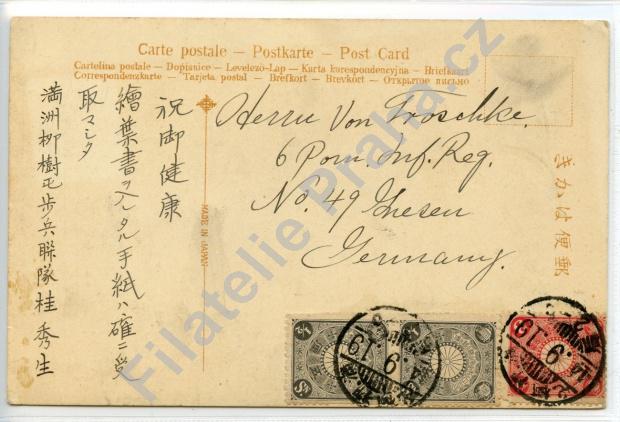 Carte postale — Postkarte — Post Card
Cartolina postale — Dopisnice — Levelező-Lap — Karta korespondencyjna — Briefkaart
Correspondenzkarte — Tarjeta postal — Brefkort — Brevkort — Открытое письмо
Herrn Von Froschke.
6 Pom. Inf. Reg.
No. 49 Gnesen
Germany.
祝御健康
繪葉書ヲ入レタル手紙ハ確ニ受
取マシタ
満洲柳樹屯歩兵聯隊桂秀生
きかは便郵
MADE IN JAPAN
Filatelie Praha.cz